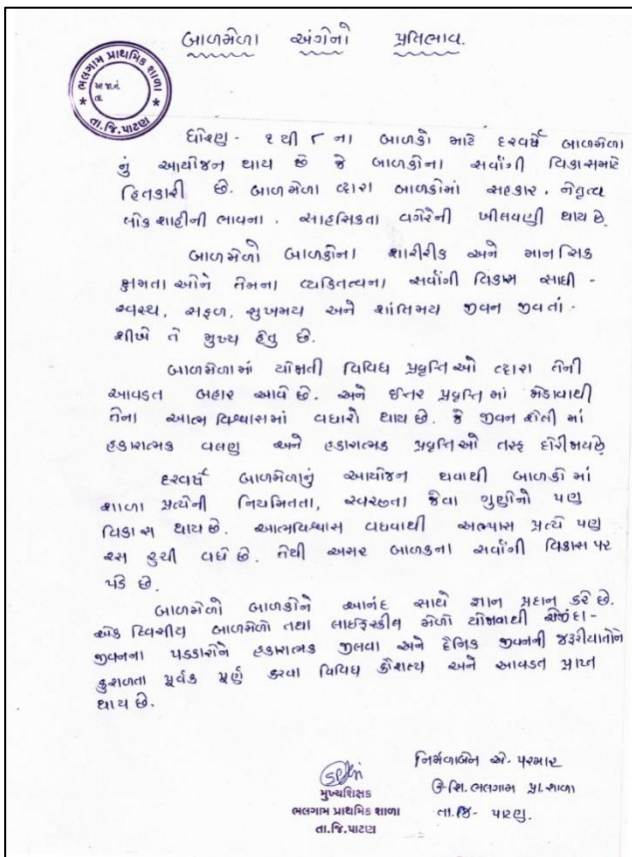 બાળમેળા અંગેનો પ્રતિભાવ.
ભલગામ પ્રાથમિક શાળા
આ.જા.નં
તા
તા.જિ.પાટણ
ધોરણ- ૧ થી ૮ ના બાળકો માટે દરવર્ષે બાળમેળા
નું આયોજન થાય છે જે બાળકોના સર્વાંગી વિકાસમાટે
હિતકારી છે. બાળમેળા દ્વારા બાળકોમાં સહકાર, નેતૃત્વ
લોકશાહીની ભાવના, સાહસિકતા વગેરેની ખીલવણી થાય છે.
બાળમેળો બાળકોના શારીરીક અને માનસિક
ક્ષમતાઓને તેમના વ્યકિતત્વના સર્વાંગી વિકાસ સાધી -
સ્વસ્થ, સફળ, સુખમય અને શાંતિમય જીવન જીવતાં
શીખે તે મુખ્ય હેતુ છે.
બાળમેળામાં યોજાતી વિવિધ પ્રવૃત્તિઓ દ્વારા તેની
આવડત બહાર આવે છે. અને ઈત્તર પ્રવૃત્તિમાં જોડાવાથી
તેના આત્મવિશ્વાસમાં વધારો થાય છે. જે જીવન શૈલી માં
હકારાત્મક વલણ અને હકારાત્મક પ્રવૃત્તિઓ તરફ દોરીજાયછે
દરવર્ષે બાળમેળાનું આયોજન થવાથી બાળકોમાં
શાળા પ્રત્યેની નિયમિતતા, સ્વચ્છતા જેવા ગુણોનો પણ
વિકાસ થાય છે. આત્મવિશ્વાસ વધવાથી અભ્યાસ પ્રત્યે પણ
રસ રુચી વધે છે. તેથી અસર બાળકના સર્વાંગી વિકાસ પર
પડે છે.
બાળમેળો બાળકોને આનંદ સાથે જ્ઞાન પ્રદાન કરે છે.
એક દિવસીય બાળમેળો તથા લાઈફસ્કીલ મેળો યોજવાથી રોજીંદા-
જીવનના પડકારોને હકારાત્મક ઝીલવા અને દૈનિક જીવનની જરૂરીયાતોને
કુશળતા પૂર્વક પૂર્ણ કરવા વિવિધ કૌશલ્ય અને આવડત પ્રાપ્ત
થાય છે.
નિર્મળાબેન એ. પરમાર
ઉ.શિ. ભલગામ પ્રા. શાળા
તા.જિ- પાટણ.
મુખ્યશિક્ષક
ભલગામ પ્રાથમિક શાળા
તા.જિ.પાટણ